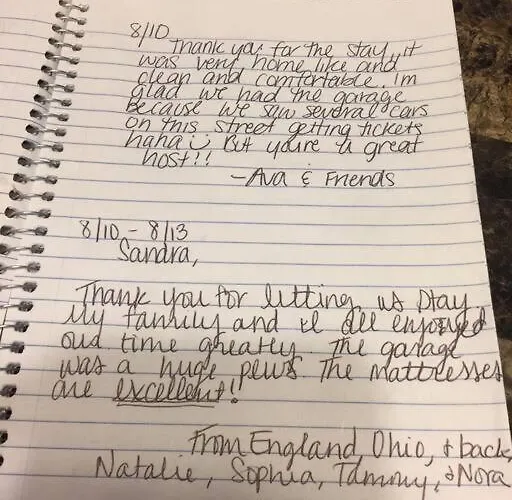 8/10
Thank you for the stay, it
was very home like and
clean and comfortable. im
glad we had the garage
because we saw several cars
on this street getting tickets
haha :) But you're a great
host!!
-Ava & Friends
8/10 - 8/13
Sandra,
Thank you for letting us stay.
My family and I all enjoyed
our time greatly. The garage
was a huge plus. The mattresses
are excellent!!
From England, Ohio, & back,
Natalie, Sophia, Tammy, & Nora